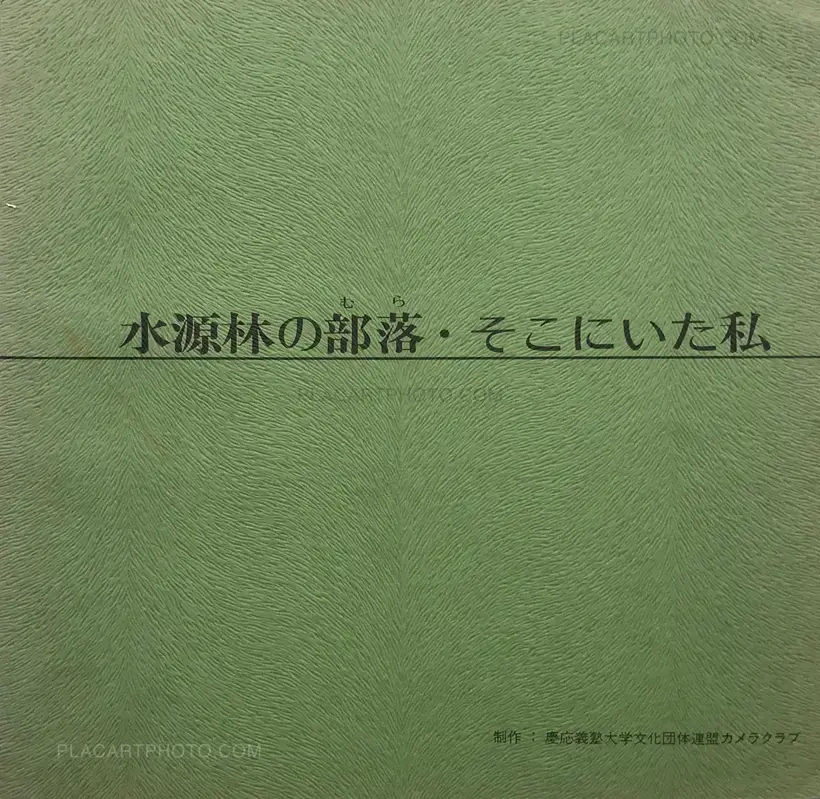 PLACARTPHOTO.COM
むら
水源林の部落・そこにいた私
PLACARTPHOTO.COM
制作：慶応義塾大学文化団体連盟カメラクラブ
PLACARTPHOTO.COM